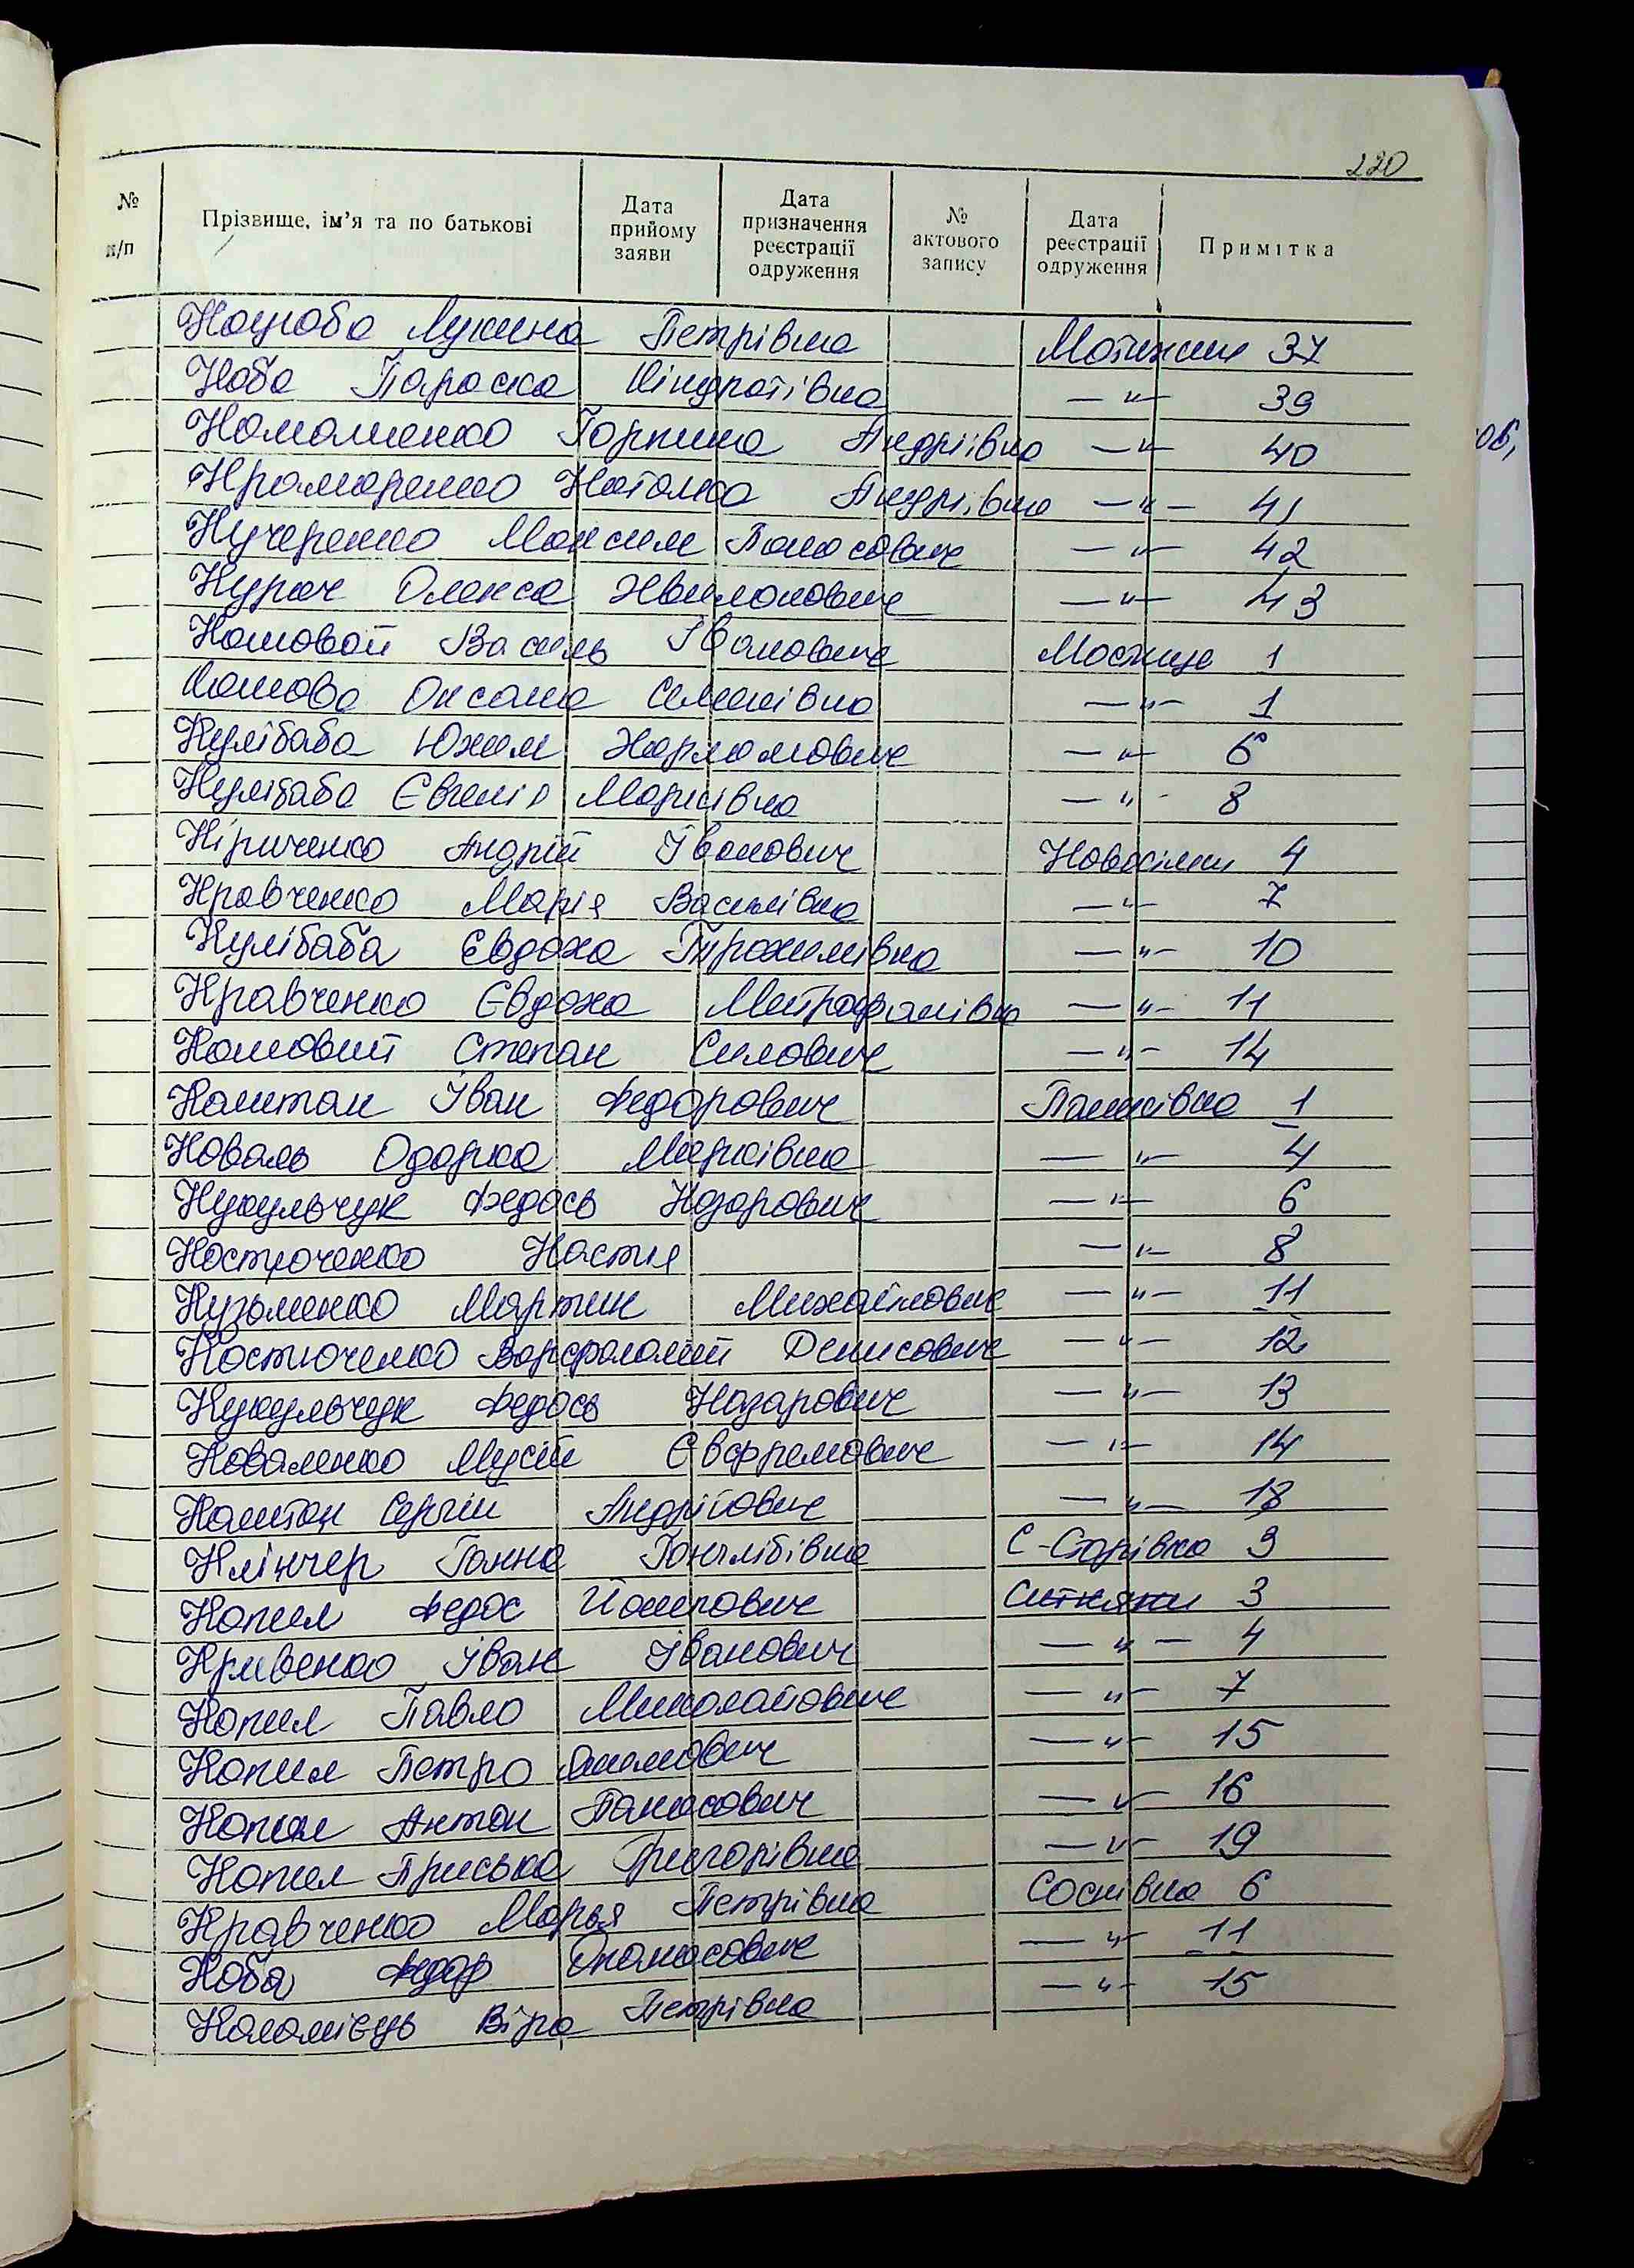 220
№ п/п
Прізвище, ім'я та по батькові
Дата прийому заяви
Дата призначення реєстрації одруження
№ актового запису
Дата реєстрації одруження
Примітка
Коцюба Лукина Петрівна Мотижин 37
Коба Параска Кіндратівна —"— 39
Комашенко Горпина Андріївна —"— 40
Крамаренко Наталка Андріївна —"— 41
Кучеренко Максим Панасович —"— 42
Курач Олекса Хвилонович —"— 43
Кошовой Василь Іванович Мостище 1
Кошова Оксана Семенівна —"— 1
Кулібаба Юхим Харламович —"— 6
Кулібаба Євгенія Марківна —"— 8
Кіриченко Андрій Іванович Новосілки 4
Кравченко Марія Василівна —"— 7
Кулібаба Євдоха Трохимівна —"— 10
Кравченко Євдоха Митрофанівна —"— 11
Кошовий Степан Силович —"— 14
Каштан Іван Федорович Пашківка 1
Коваль Одарка Марківна —"— 4
Кукульчук Федось Назарович —"— 6
Костюченко Настя —"— 8
Кузьменко Мартин Михайлович —"— 11
Костюченко Варфоломій Денисович —"— 12
Кукульчук Федось Назарович —"— 13
Коваленко Мусій Євфремович —"— 14
Каштан Сергій Андрійович —"— 18
Клінчер Ганна Гонглібівна С-Сторівка 3
Копил Федос Йосипович Ситняки 3
Кривенко Іван Іванович —"— 4
Копил Павло Миколайович —"— 7
Копил Петро Якимович —"— 15
Копил Антон Панасович —"— 16
Копил Приська Григорівна —"— 19
Кравченко Марья Петрівна Соснівка 6
Коба Федор Опанасович —"— 11
Коломієць Віра Петрівна —"— 15
ов,